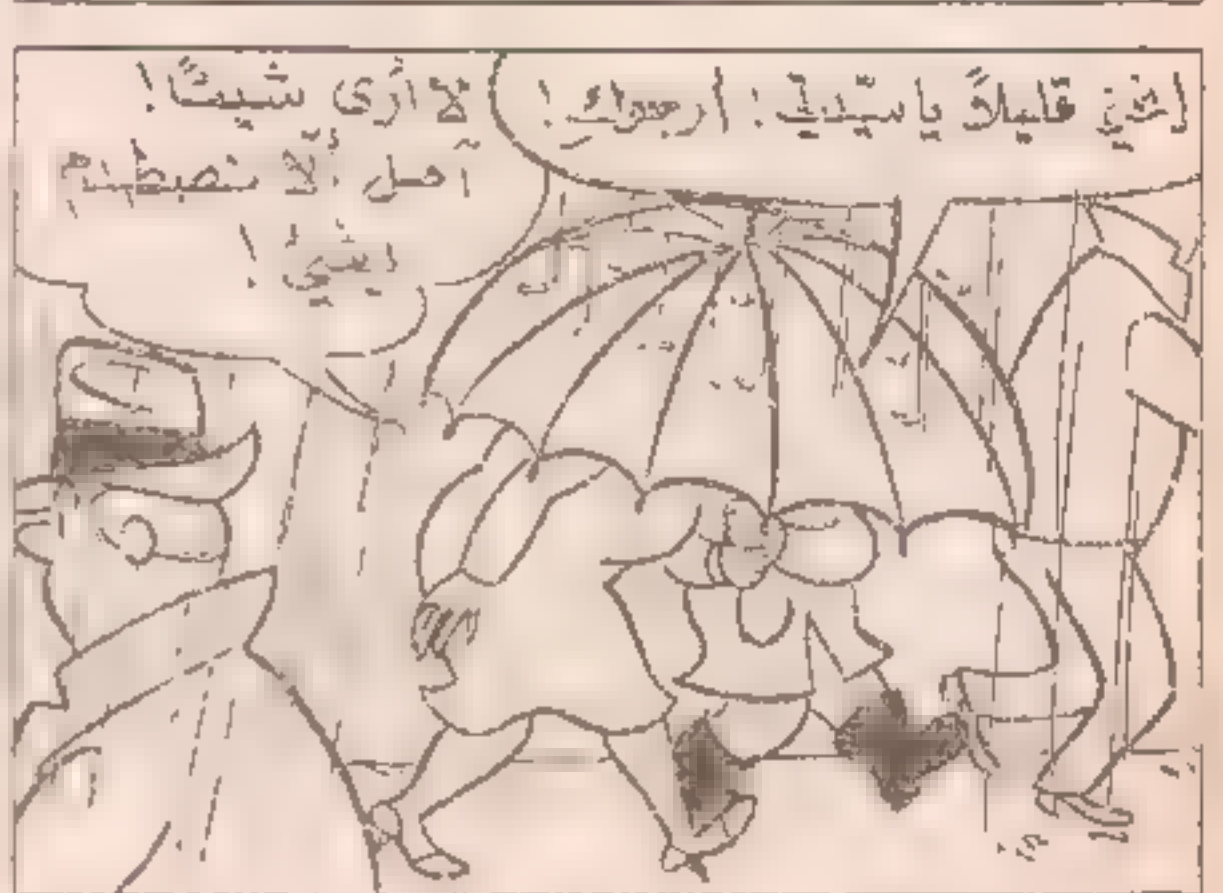 إنحني قليلاً يا سيّدتي! أرجوك!
لا أرى شيئًا!
آمل ألّا نصطدم
بشيء!